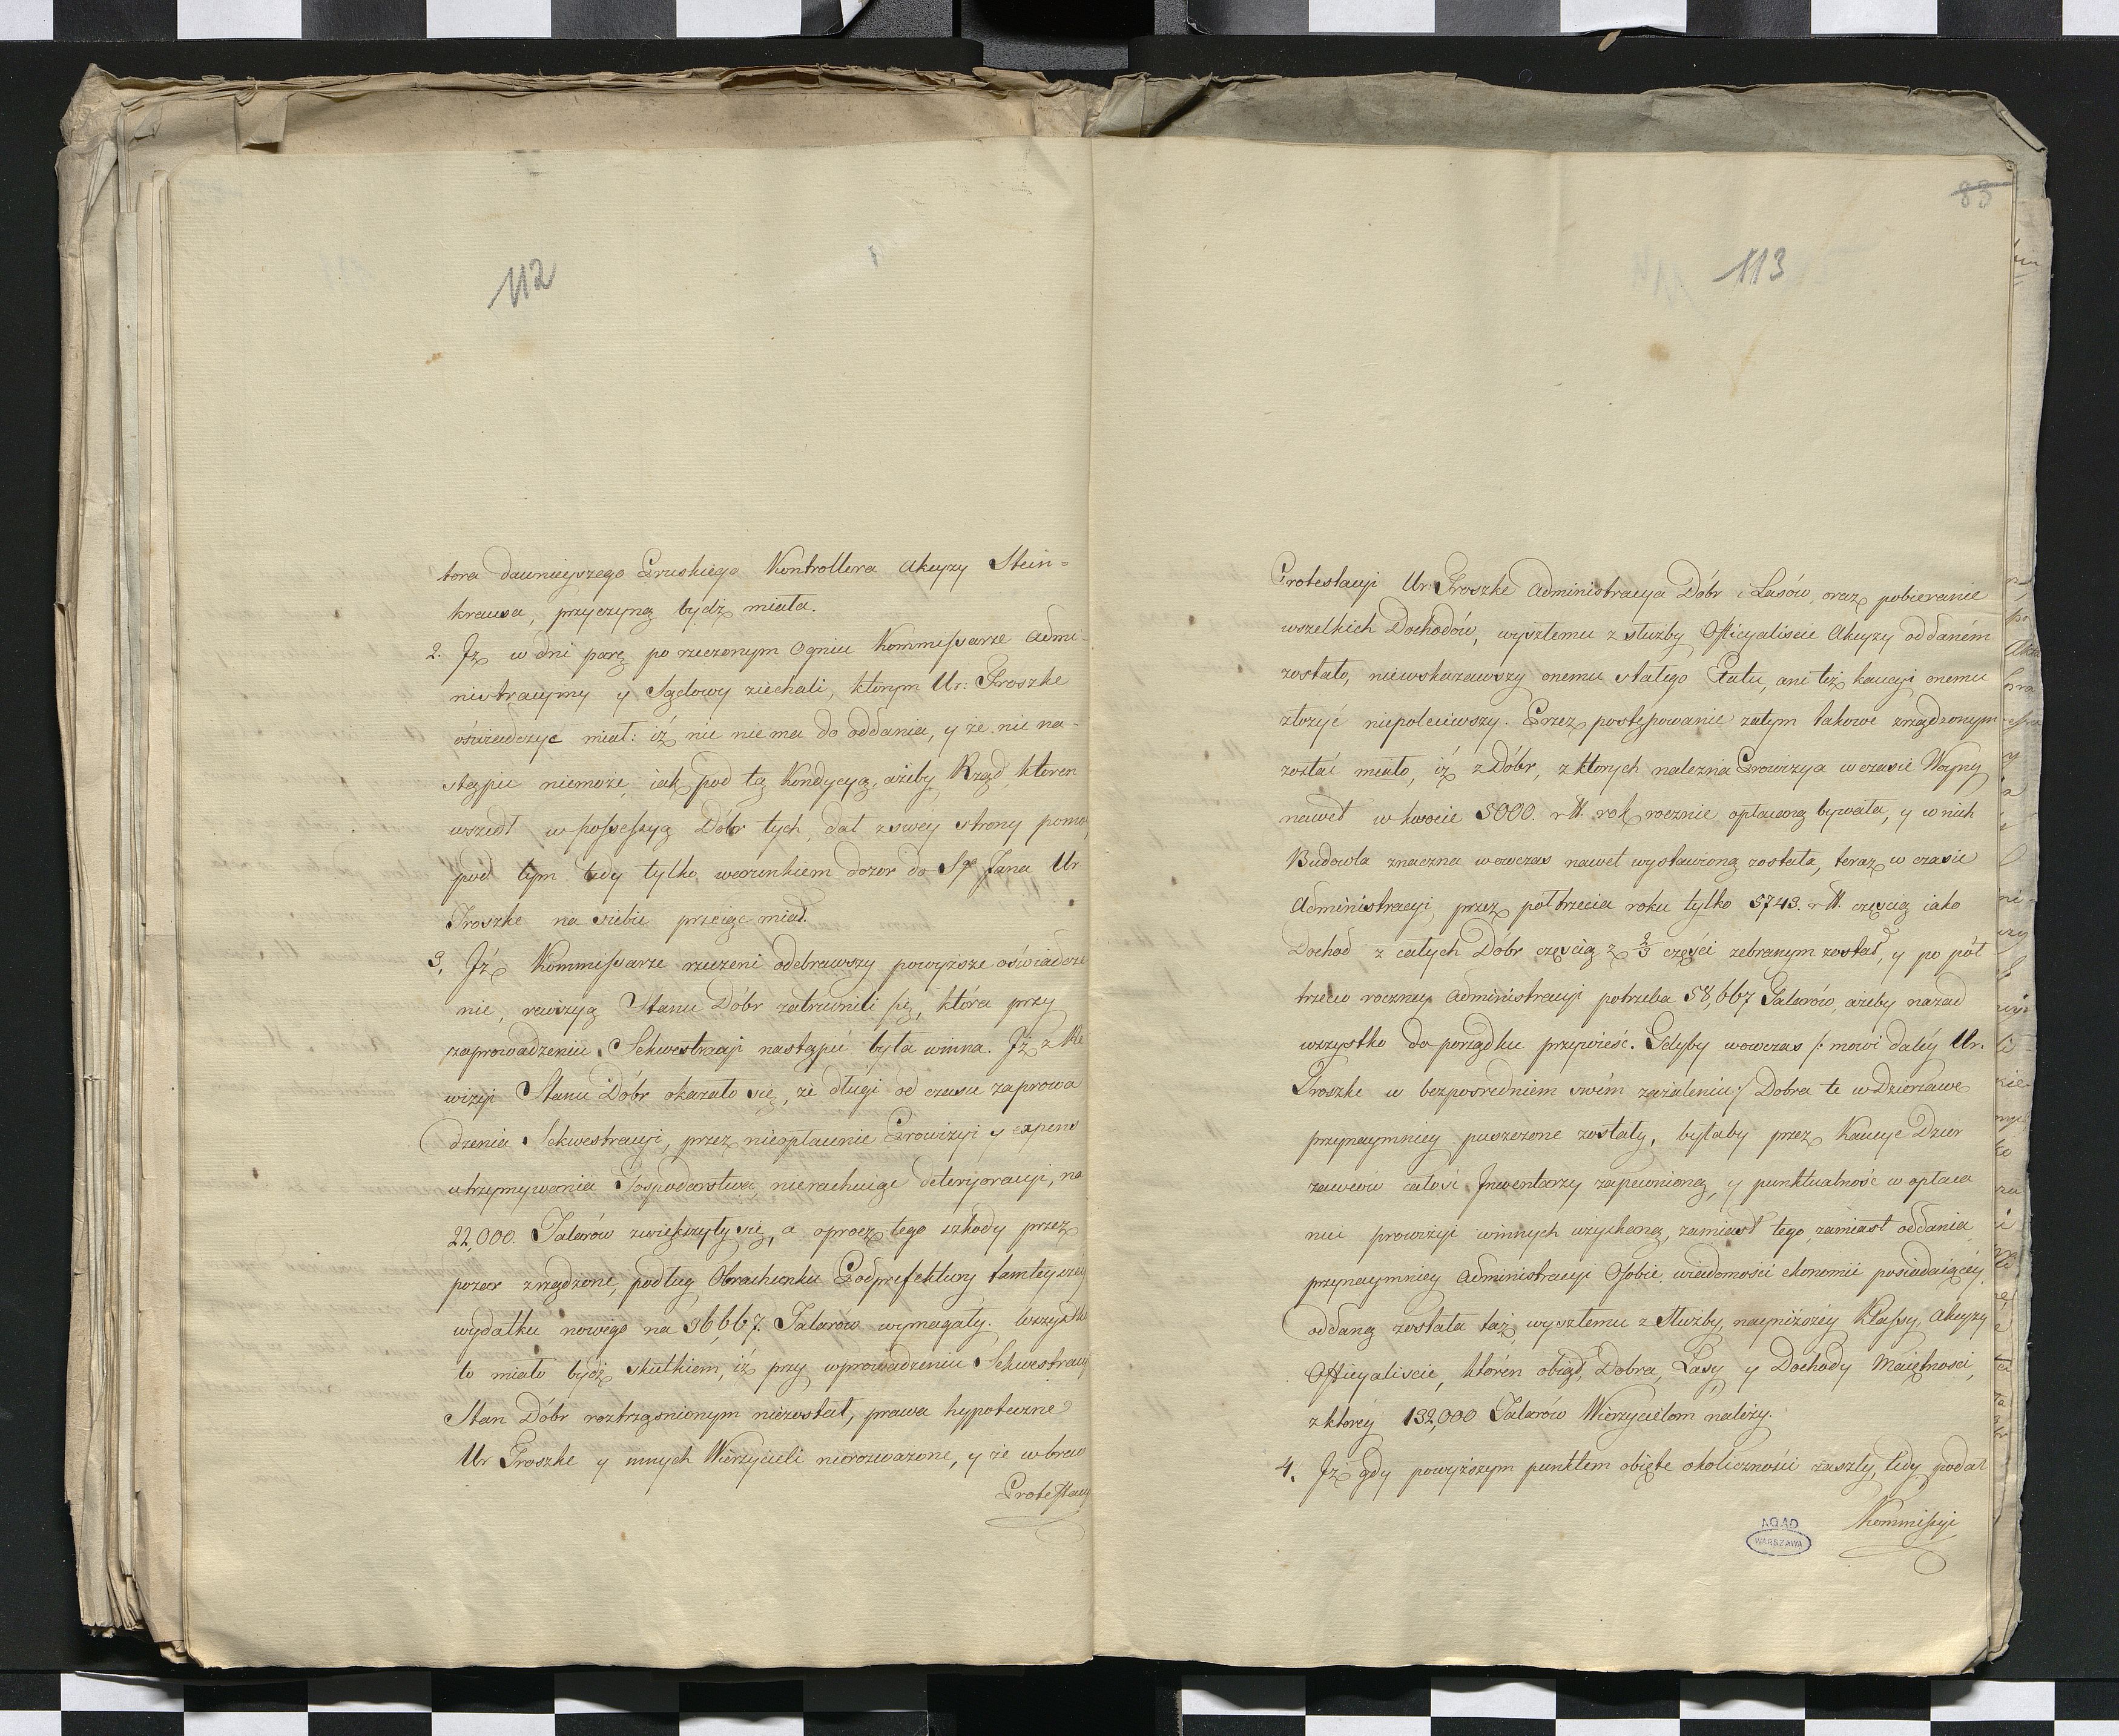 112
tora dawnieyszego Pruskiego Kontrollera Akcyzy Stein=
krausa, przyczyną bydź miała.
2. Iż w dni parę po rzeczonym Ogniu Kommissarze Admi-
nistracyiny y Sądowy ziechali, którym Ur: Troszke
oświadczyć miał: iż nic nie ma do oddania, y że nic na-
stąpić niemoże, iak pod tą Kondycyą, ażeby Rząd, ktoren
wszedł w possessyą Dóbr tych, dał z swey strony pomoc,
pod tym tedy tylko warunkiem dozor do Sgo Jana Ur
Troszke na siebie przyiąć miał.
3, Iż Kommissarze rzeczeni odebrawszy powyższe oświadcze
nie, rewizyą Stanu Dóbr zatrudnili się, która przy
zaprowadzeniu Sekwestracyi nastąpić była winna. Iż z Re
wizyi Stanu Dóbr okazało się, że długi od czasu zaprowa
dzenia Sekwestracyi, przez nieopłacenie Prowizyi y expens
utrzymywania Gospodarstwa nierachuiąc deteryoracyi, na
22,000. Talarów zwiększyły się, a oprocz tego szkody przez
pozar zrządzone, podług Obrachunku Podprefektury tamteyszey
wydatku nowego na 36,667. Talarów wymagały. Wszystko
to miało bydź skutkiem, iż przy wprowadzeniu Sekwestracyi
Stan Dóbr roztrząsnionym niezostał, prawa hypoteczne
Ur Troszke y innych Wierzycieli nierozważone, y że wbrew
Protestacyi
88
113
Protestacyi Ur: Troszke Administracya Dóbr i Lasów, oraz pobieranie
wszelkich Dochodów, wyszłemu z służby Officyaliscie Akcyzy oddaném
zostało, niewskazawszy onemu stałego Etatu, ani też kaucyi onemu
złożyć niepoleciwszy. Przez postępowanie zatym takowe zrządzonym
zostać miało, iż z Dóbr, z których należna Prowizya w czasie Woyny
nawet w kwocie 5000. rtl. rok rocznie opłacaną bywała, y w nich
Budowla znaczna wowczas nawet wystawioną została, teraz w czasie
Administracyi, przez półtrzecia roku tylko 5743. rtl. częscią iako
Dochod z całych Dóbr częscią z 2/3 części zebranym został, y po pół
trzecio roczney Administracyi potrzeba 58,667 Talarów, ażeby nazad
wszystko do porządku przywieść. Gdyby wowczas /: mowi daléy Ur.
Troszke w bezpośredniem swém zażaleniu :/ Dobra te w Dzierżawę
przynaymniey puszczone zostały, byłaby przez Kaucye Dzier
zawców całość Inwentarzy zapewnioną, y punktualność w opłaca
niu prowizyi winnych uzyskaną, zamiast tego, zamiast oddania
przynaymniey Administracyi Osobie, wiadomości ekonomii posiadaiącéy
oddaną została taż wyszłemu z Służby nayniższéy Klassy Akcyzy
Officyaliscie, któren obiął Dobra, Lasy, y Dochody Maiętnosci,
z któréy 132,000 Talarów Wierzycielom należy.
4. Iż gdy powyższym punktem obięte okoliczności zaszły, tedy podał
Kommissyi
AGAD
WARSZAWA